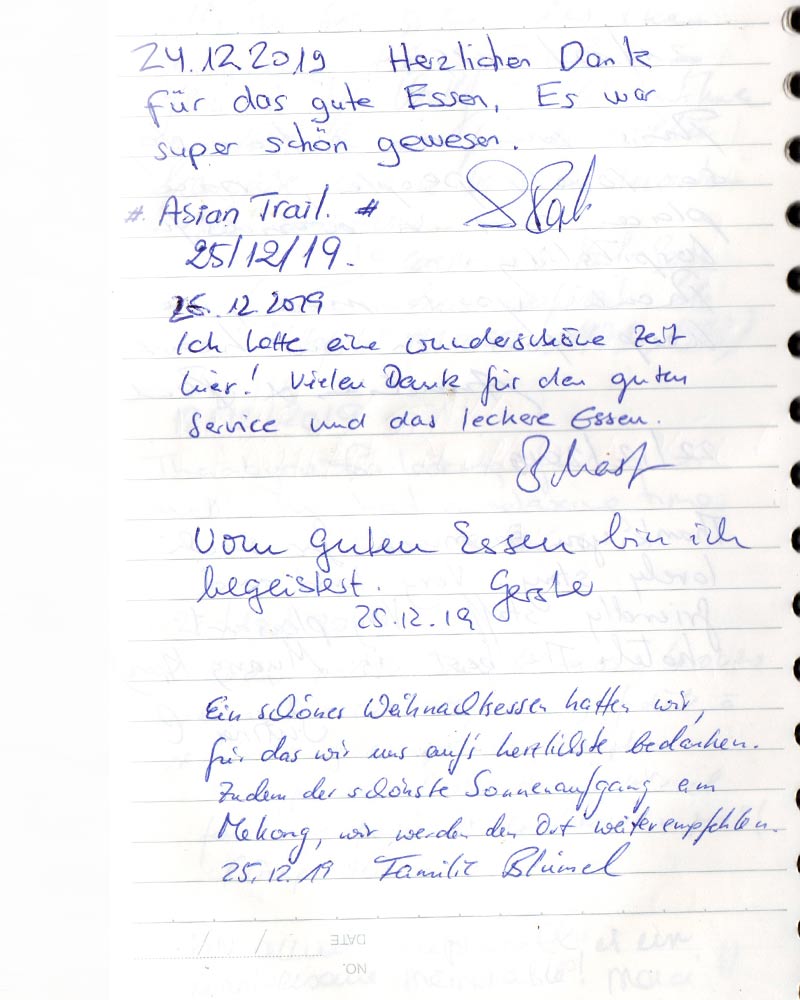 24.12.2019 Herzlichen Dank
für das gute Essen, Es war
super schön gewesen.
# Asian Trail. #
25/12/19.
25.12.2019
Ich hatte eine wunderschöne Zeit
hier! Vielen Dank für den guten
Service und das leckere Essen.
Vom guten Essen bin ich
begeistert. Gerste
25.12.19
Ein schönes Weihnachtsessen hatten wir,
für das wir uns auf's herzlichste bedanken.
Zudem der schönste Sonnenaufgang am
Mekong, wir werden den Ort weiterempfehlen.
25.12.19 Familie Blümel
DATE
NO.